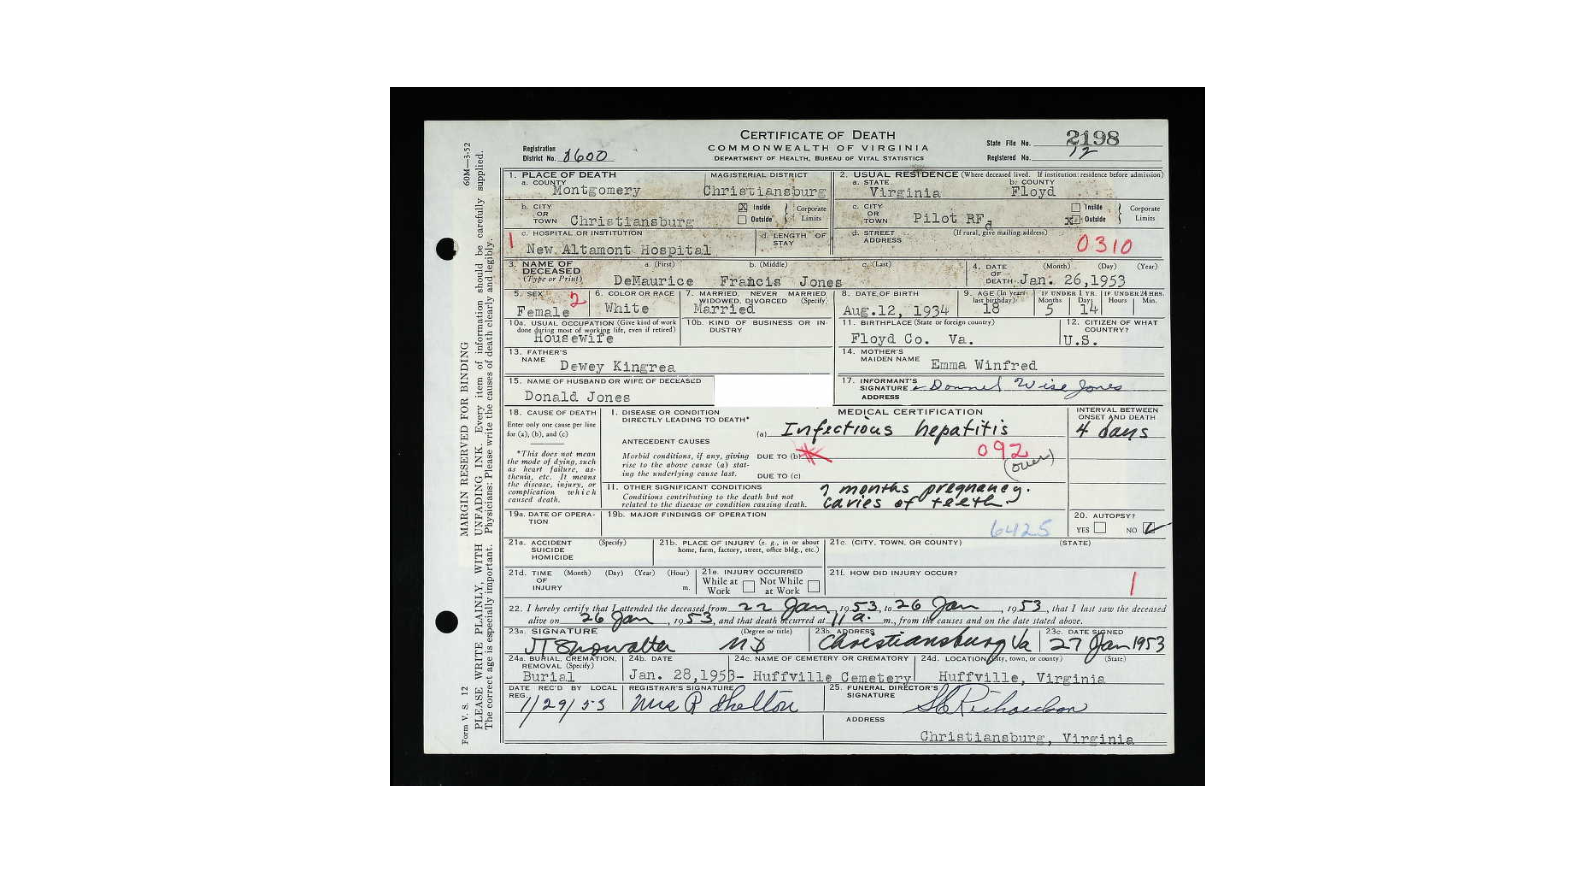 CERTIFICATE OF DEATH
COMMONWEALTH OF VIRGINIA
DEPARTMENT OF HEALTH, BUREAU OF VITAL STATISTICS
Registration District No. 8600
State File No. 2198
Registered No. 12
60M—3-52
MARGIN RESERVED FOR BINDING
PLEASE WRITE PLAINLY, WITH UNFADING INK. Every item of information should be carefully supplied.
The correct age is especially important. Physicians: Please write the causes of death clearly and legibly.
Form V. S. 12
1. PLACE OF DEATH
a. COUNTY Montgomery
MAGISTERIAL DISTRICT Christiansburg
2. USUAL RESIDENCE (Where deceased lived. If institution: residence before admission)
a. STATE Virginia
b. COUNTY Floyd
b. CITY OR TOWN Christiansburg
X Inside Outside Corporate Limits
c. CITY OR TOWN Pilot RFd
Inside X Outside Corporate Limits
c. HOSPITAL OR INSTITUTION New Altamont Hospital
1
d. LENGTH OF STAY
d. STREET ADDRESS (If rural, give mailing address)
0310
3. NAME OF DECEASED (Type or Print)
a. (First) b. (Middle) c. (Last)
DeMaurice Francis Jones
4. DATE OF DEATH (Month) (Day) (Year)
Jan. 26,1953
5. SEX Female 2
6. COLOR OR RACE White
7. MARRIED, NEVER MARRIED WIDOWED, DIVORCED (Specify) Married
8. DATE OF BIRTH Aug.12, 1934
9. AGE (In years last birthday) 18
IF UNDER 1 YR. Months 5 Days 14
IF UNDER 24 HRS. Hours Min.
10a. USUAL OCCUPATION (Give kind of work done during most of working life, even if retired) Housewife
10b. KIND OF BUSINESS OR INDUSTRY
11. BIRTHPLACE (State or foreign country) Floyd Co. Va.
12. CITIZEN OF WHAT COUNTRY? U.S.
13. FATHER'S NAME Dewey Kingrea
14. MOTHER'S MAIDEN NAME Emma Winfred
15. NAME OF HUSBAND OR WIFE OF DECEASED Donald Jones
17. INFORMANT'S SIGNATURE Wise Jones
ADDRESS
18. CAUSE OF DEATH
Enter only one cause per line for (a), (b), and (c)
*This does not mean the mode of dying, such as heart failure, asthenia, etc. It means the disease, injury, or complication which caused death.
MEDICAL CERTIFICATION
I. DISEASE OR CONDITION DIRECTLY LEADING TO DEATH*
(a) Infectious hepatitis
INTERVAL BETWEEN ONSET AND DEATH
4 days
ANTECEDENT CAUSES
Morbid conditions, if any, giving rise to the above cause (a) stating the underlying cause last.
DUE TO (b)
092
(over)
DUE TO (c)
11. OTHER SIGNIFICANT CONDITIONS
Conditions contributing to the death but not related to the disease or condition causing death.
7 months pregnancy.
caries of teeth
19a. DATE OF OPERATION
19b. MAJOR FINDINGS OF OPERATION
6425
20. AUTOPSY?
YES NO
21a. ACCIDENT SUICIDE HOMICIDE (Specify)
21b. PLACE OF INJURY (e. g., in or about home, farm, factory, street, office bldg., etc.)
21c. (CITY, TOWN, OR COUNTY) (STATE)
21d. TIME OF INJURY (Month) (Day) (Year) (Hour) m.
21e. INJURY OCCURRED While at Work Not While at Work
21f. HOW DID INJURY OCCUR?
1
22. I hereby certify that I attended the deceased from 22 Jan, 1953, to 26 Jan, 1953, that I last saw the deceased
alive on 26 Jan, 1953, and that death occurred at 11 a. m., from the causes and on the date stated above.
23a. SIGNATURE (Degree or title) JT Showalter MD
23b. ADDRESS Christiansburg Va
23c. DATE SIGNED 27 Jan 1953
24a. BURIAL, CREMATION, REMOVAL (Specify) Burial
24b. DATE Jan. 28,1953-
24c. NAME OF CEMETERY OR CREMATORY Huffville Cemetery
24d. LOCATION (City, town, or county) (State) Huffville, Virginia
DATE REC'D BY LOCAL REG. 1/29/53
REGISTRAR'S SIGNATURE Mrs P Shelton
25. FUNERAL DIRECTOR'S SIGNATURE Richardson
ADDRESS
Christiansburg, Virginia